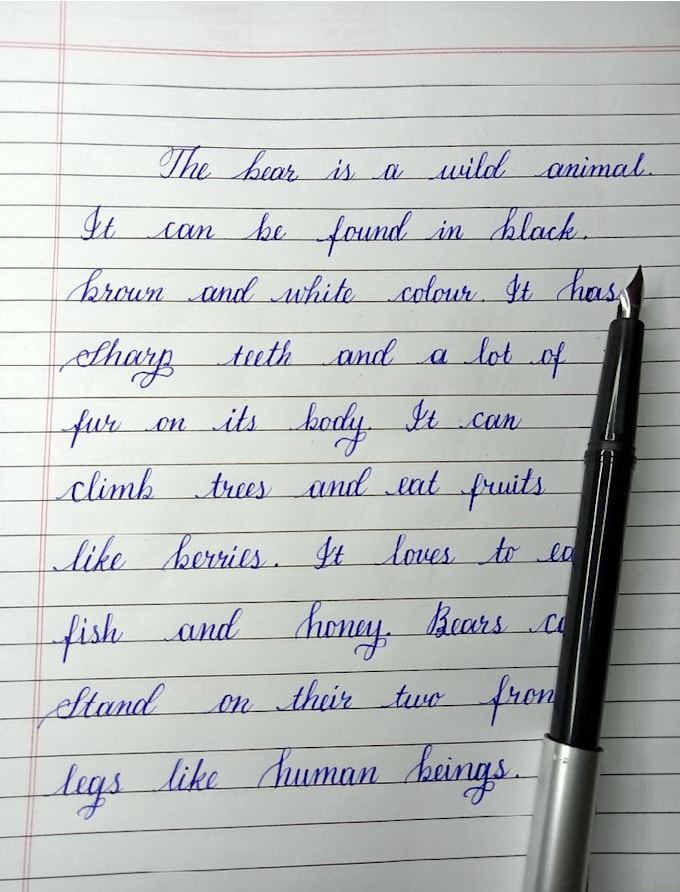 The bear is a wild animal.
It can be found in black,
brown and white colour. It has
sharp teeth and a lot of
fur on its body. It can
climb trees and eat fruits
like berries. It loves to
fish and honey. Bears
stand on their two
legs like human beings.